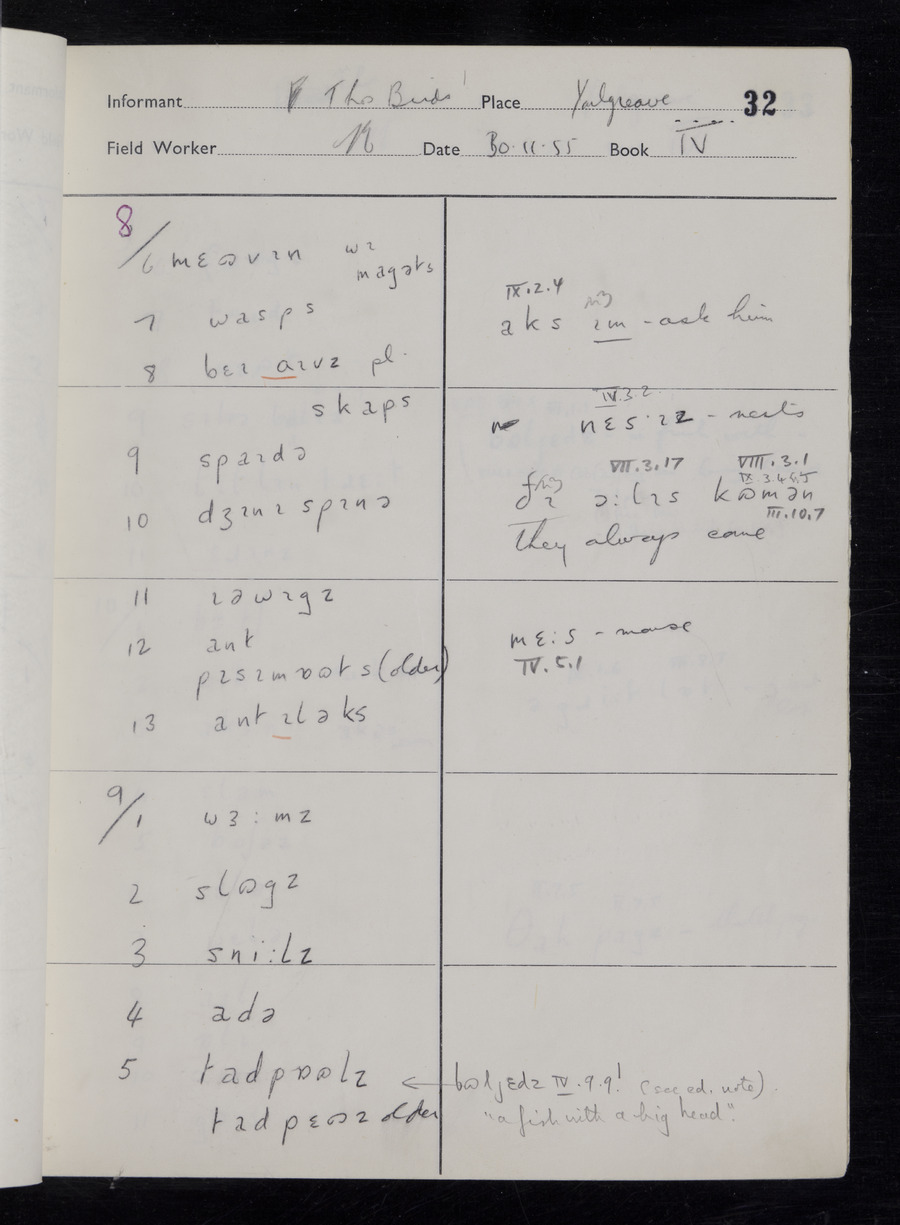 Informant Thos Birds Place Youlgreave 32
Field Worker Date 30.11.55 Book IV
8/
6 mɛʊvɪn wɪ
magəts
7 wasps
8 beɪ aɪvz pl.
skaps
9 spaɪdə
10 dʒɪnɪ spɪnə
11 ɪəwɪgz
12 ant
pɪsɪmɒʊts (older)
13 antɪləks
9/1 wɜ:mz
2 slʊgz
3 sni:lz
4 adə
5 tadpɒʊlz
tadpɛʊz older
IX.2.4
aks ɪm - ask him
IV.3.2
nɛs·ɪz - nests
VII.3.17 VIII.3.1
IX.3.4
ðɪ ɔ:lɪs kʊmən
III.10.7
They always come
mɛ:s - mouse
IV.5.1
← bʊljɛdz IV.9.9! (see ed. note).
"a fish with a big head".